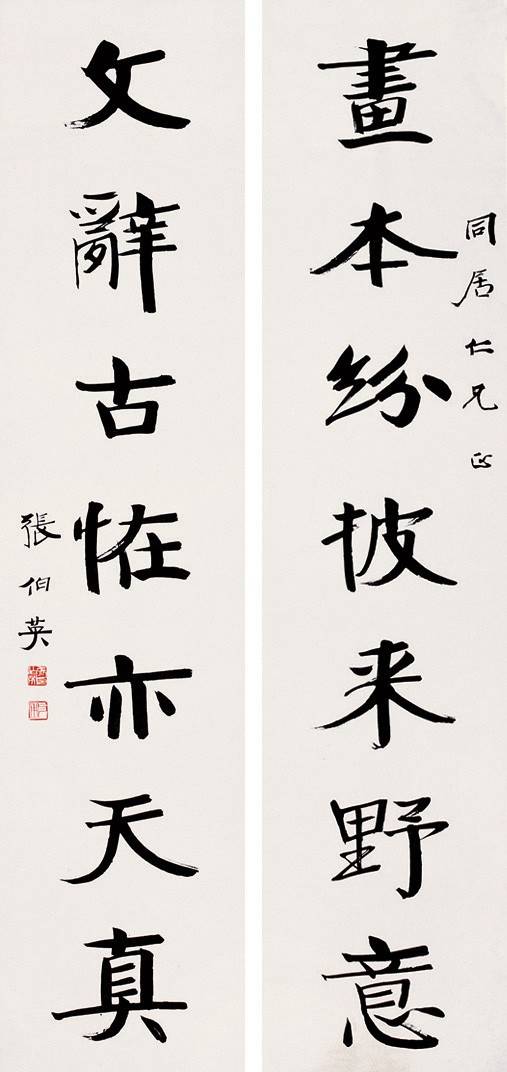 畫本紛披来野意
同居仁兄正
文辭古恠亦天真
張伯英